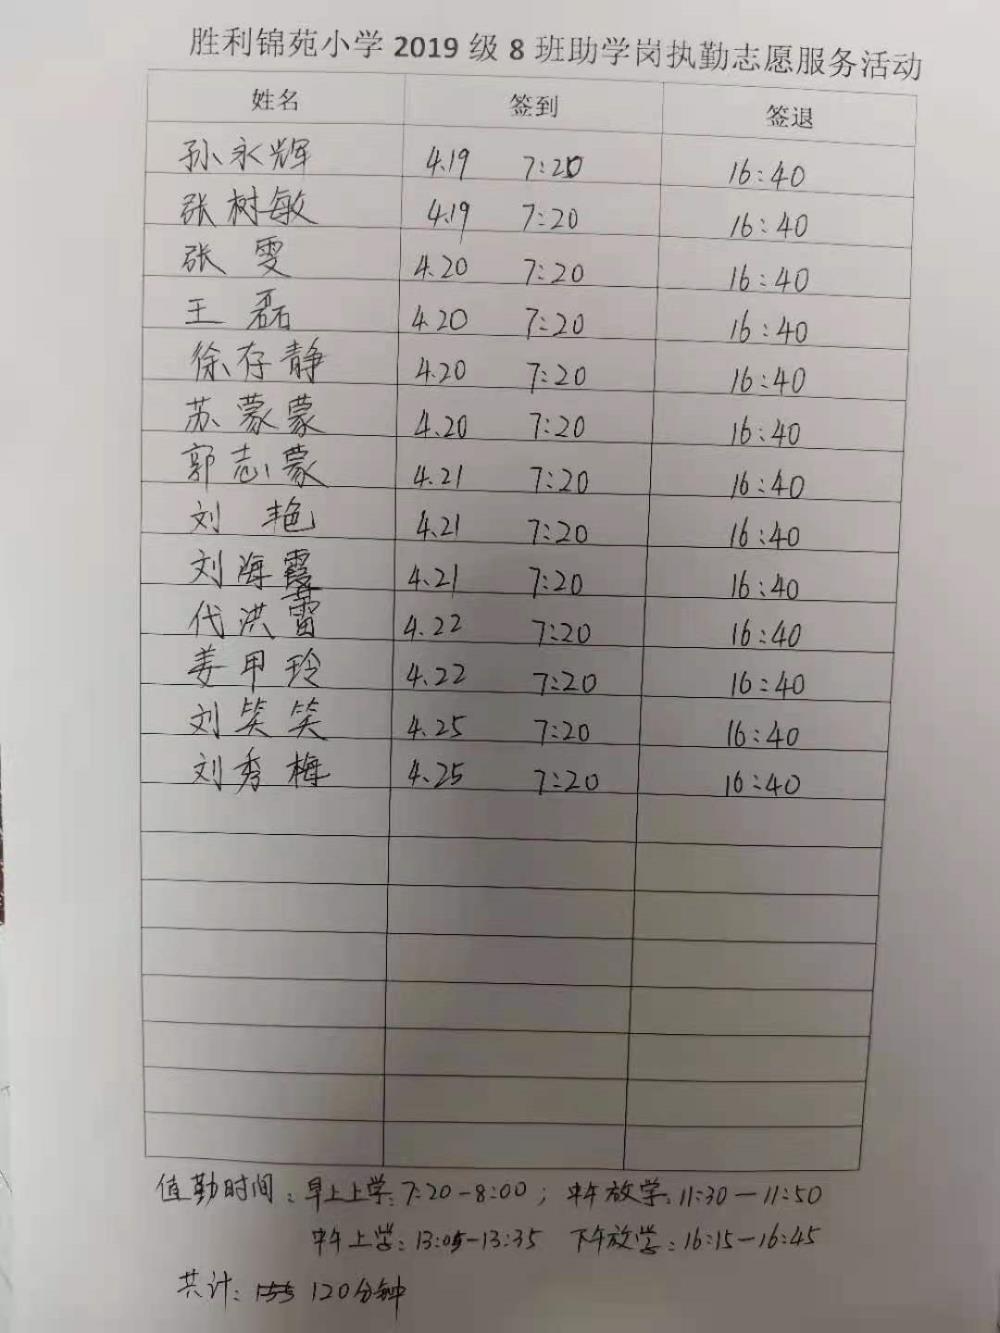 胜利锦苑小学 2019 级 8 班助学岗执勤志愿服务活动
姓名 签到 签退
孙永辉 4.19 7:20 16:40
张树敏 4.19 7:20 16:40
张雯 4.20 7:20 16:40
王磊 4.20 7:20 16:40
徐存静 4.20 7:20 16:40
苏蒙蒙 4.20 7:20 16:40
郭志蒙 4.21 7:20 16:40
刘艳 4.21 7:20 16:40
刘海霞 4.21 7:20 16:40
代洪雷 4.22 7:20 16:40
姜甲玲 4.22 7:20 16:40
刘笑笑 4.25 7:20 16:40
刘秀梅 4.25 7:20 16:40
值勤时间:早上上学:7:20-8:00; 中午放学:11:30-11:50
中午上学:13:05-13:35 下午放学:16:15-16:45
共计: 120分钟